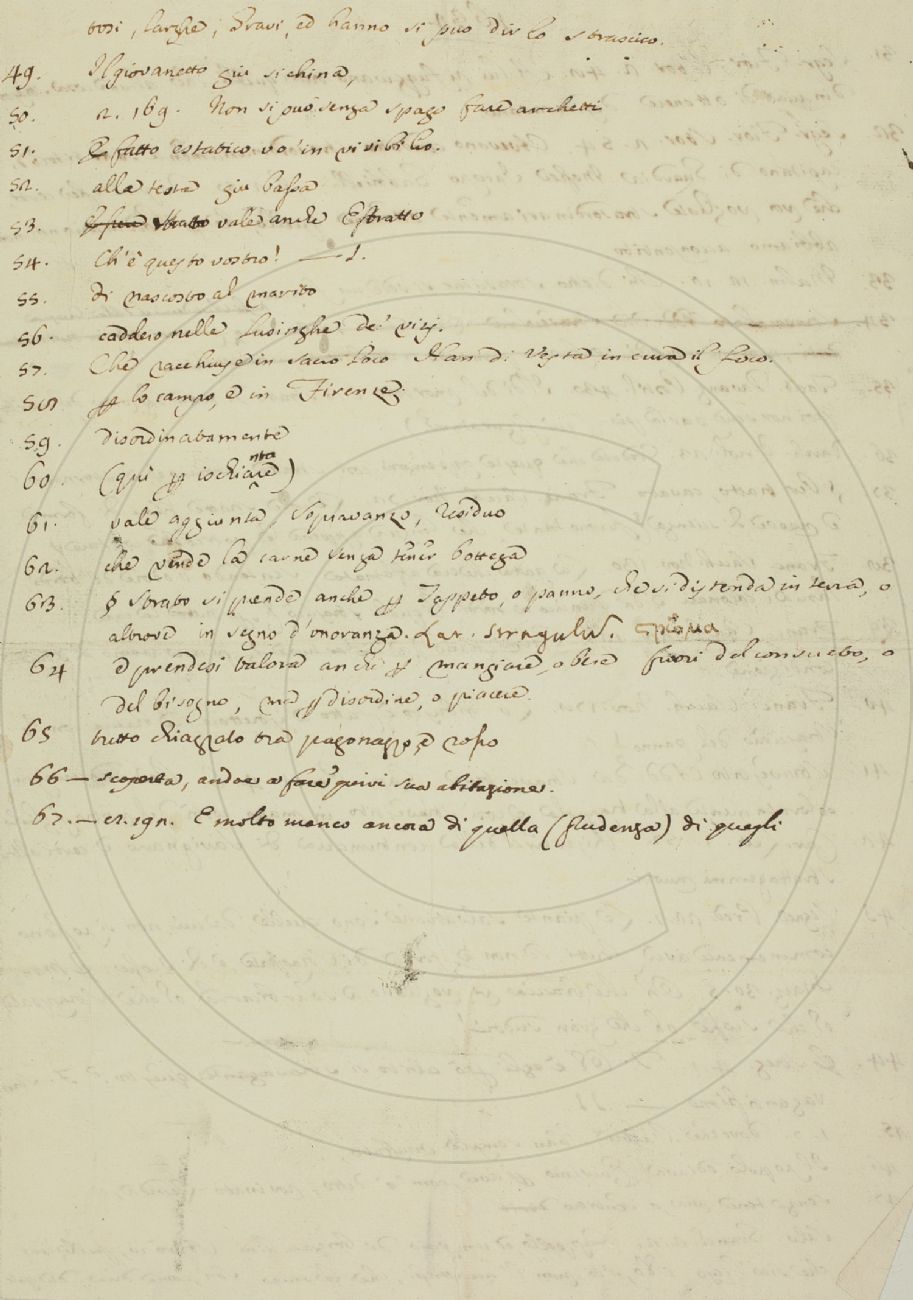 tosi, larghe, gravi, ed hanno si può dir lo strascico.
49. Il giovanetto giù si china,
50. n. 169. Non si può senza spago fare archetti
51. E fatto estatico vo' in visibilio.
52. alla testa giù bassa
53. vale anche Estratto
54. Ch'è questo vostro! — 1.
55. di nascosto al marito
56. caddero nelle lusinghe de' vizj.
57. Che racchiuse in sacro loco Han di Vesta in cura il foco.
58 p lo campo, e in Firenze.
59. disordinatamente
60. (quì p ischiarenta)
61. vale aggiunta, Sopravanzo, residuo
62. che vende la carne senza tener bottega
63. strato si prende anche p Tappeto, o panno, che si distenda in terra, o
altrove in segno d'onoranza. Lat. stragulũ. στρῶμα
64 e prendesi talora anche p mangiare, o bere fuori del consueto, o
del bisogno, ma p disordine, o piacere.
65 tutto chiazzato tra pagonazzo, e rosso
66 — scoperta, andar a fare quivi sua abitazione.
67. — E molto manco ancora di quella (prudenza) di quegli